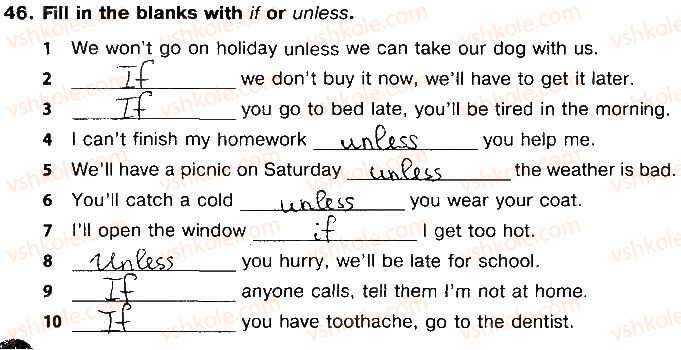 46. Fill in the blanks with if or unless.
1 We won't go on holiday unless we can take our dog with us.
2 If we don't buy it now, we'll have to get it later.
3 If you go to bed late, you'll be tired in the morning.
4 I can't finish my homework unless you help me.
5 We'll have a picnic on Saturday unless the weather is bad.
6 You'll catch a cold unless you wear your coat.
7 I'll open the window if I get too hot.
8 Unless you hurry, we'll be late for school.
9 If anyone calls, tell them I'm not at home.
10 If you have toothache, go to the dentist.
vshkole.com